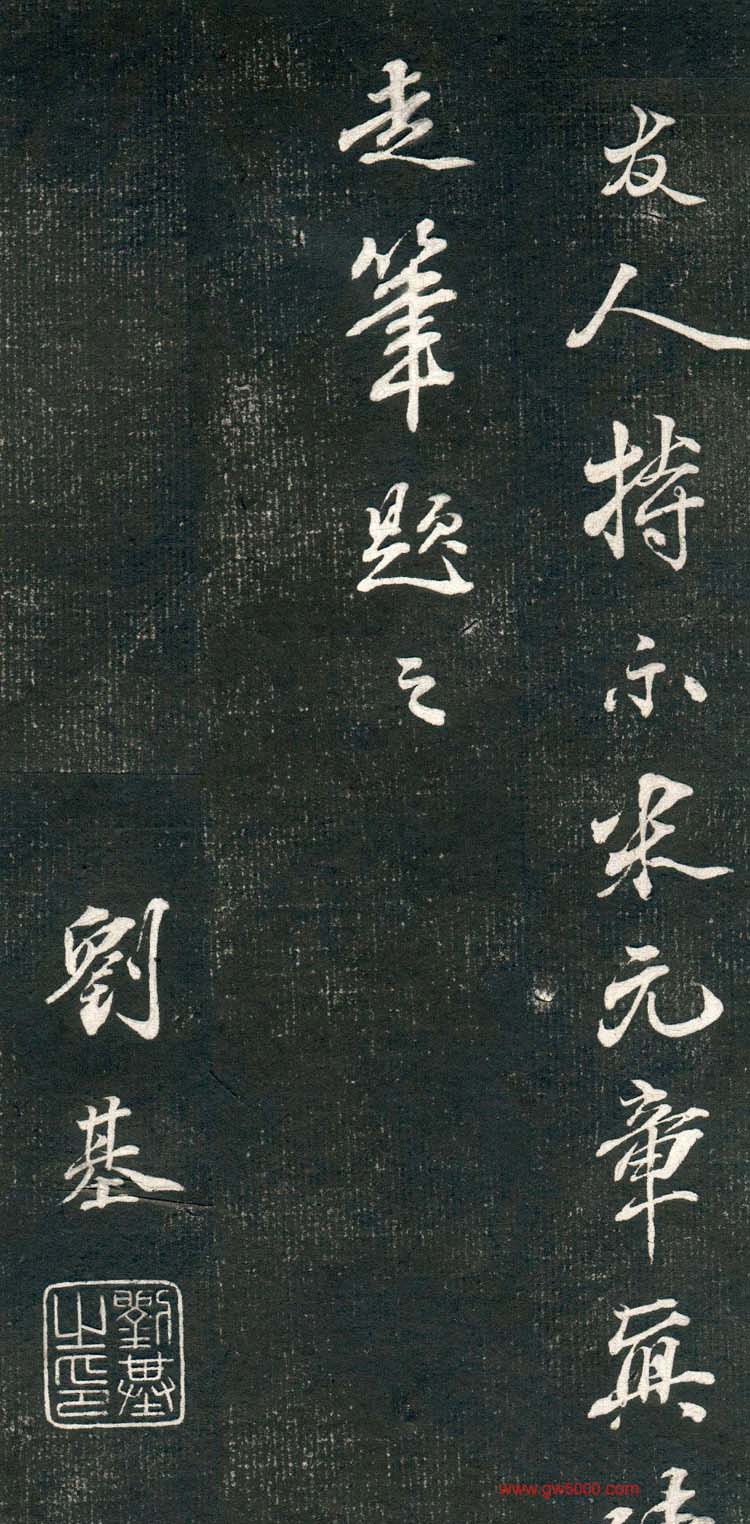 友人持示米元章真
走筆題之
劉基
劉基之印
www.gw5000.com